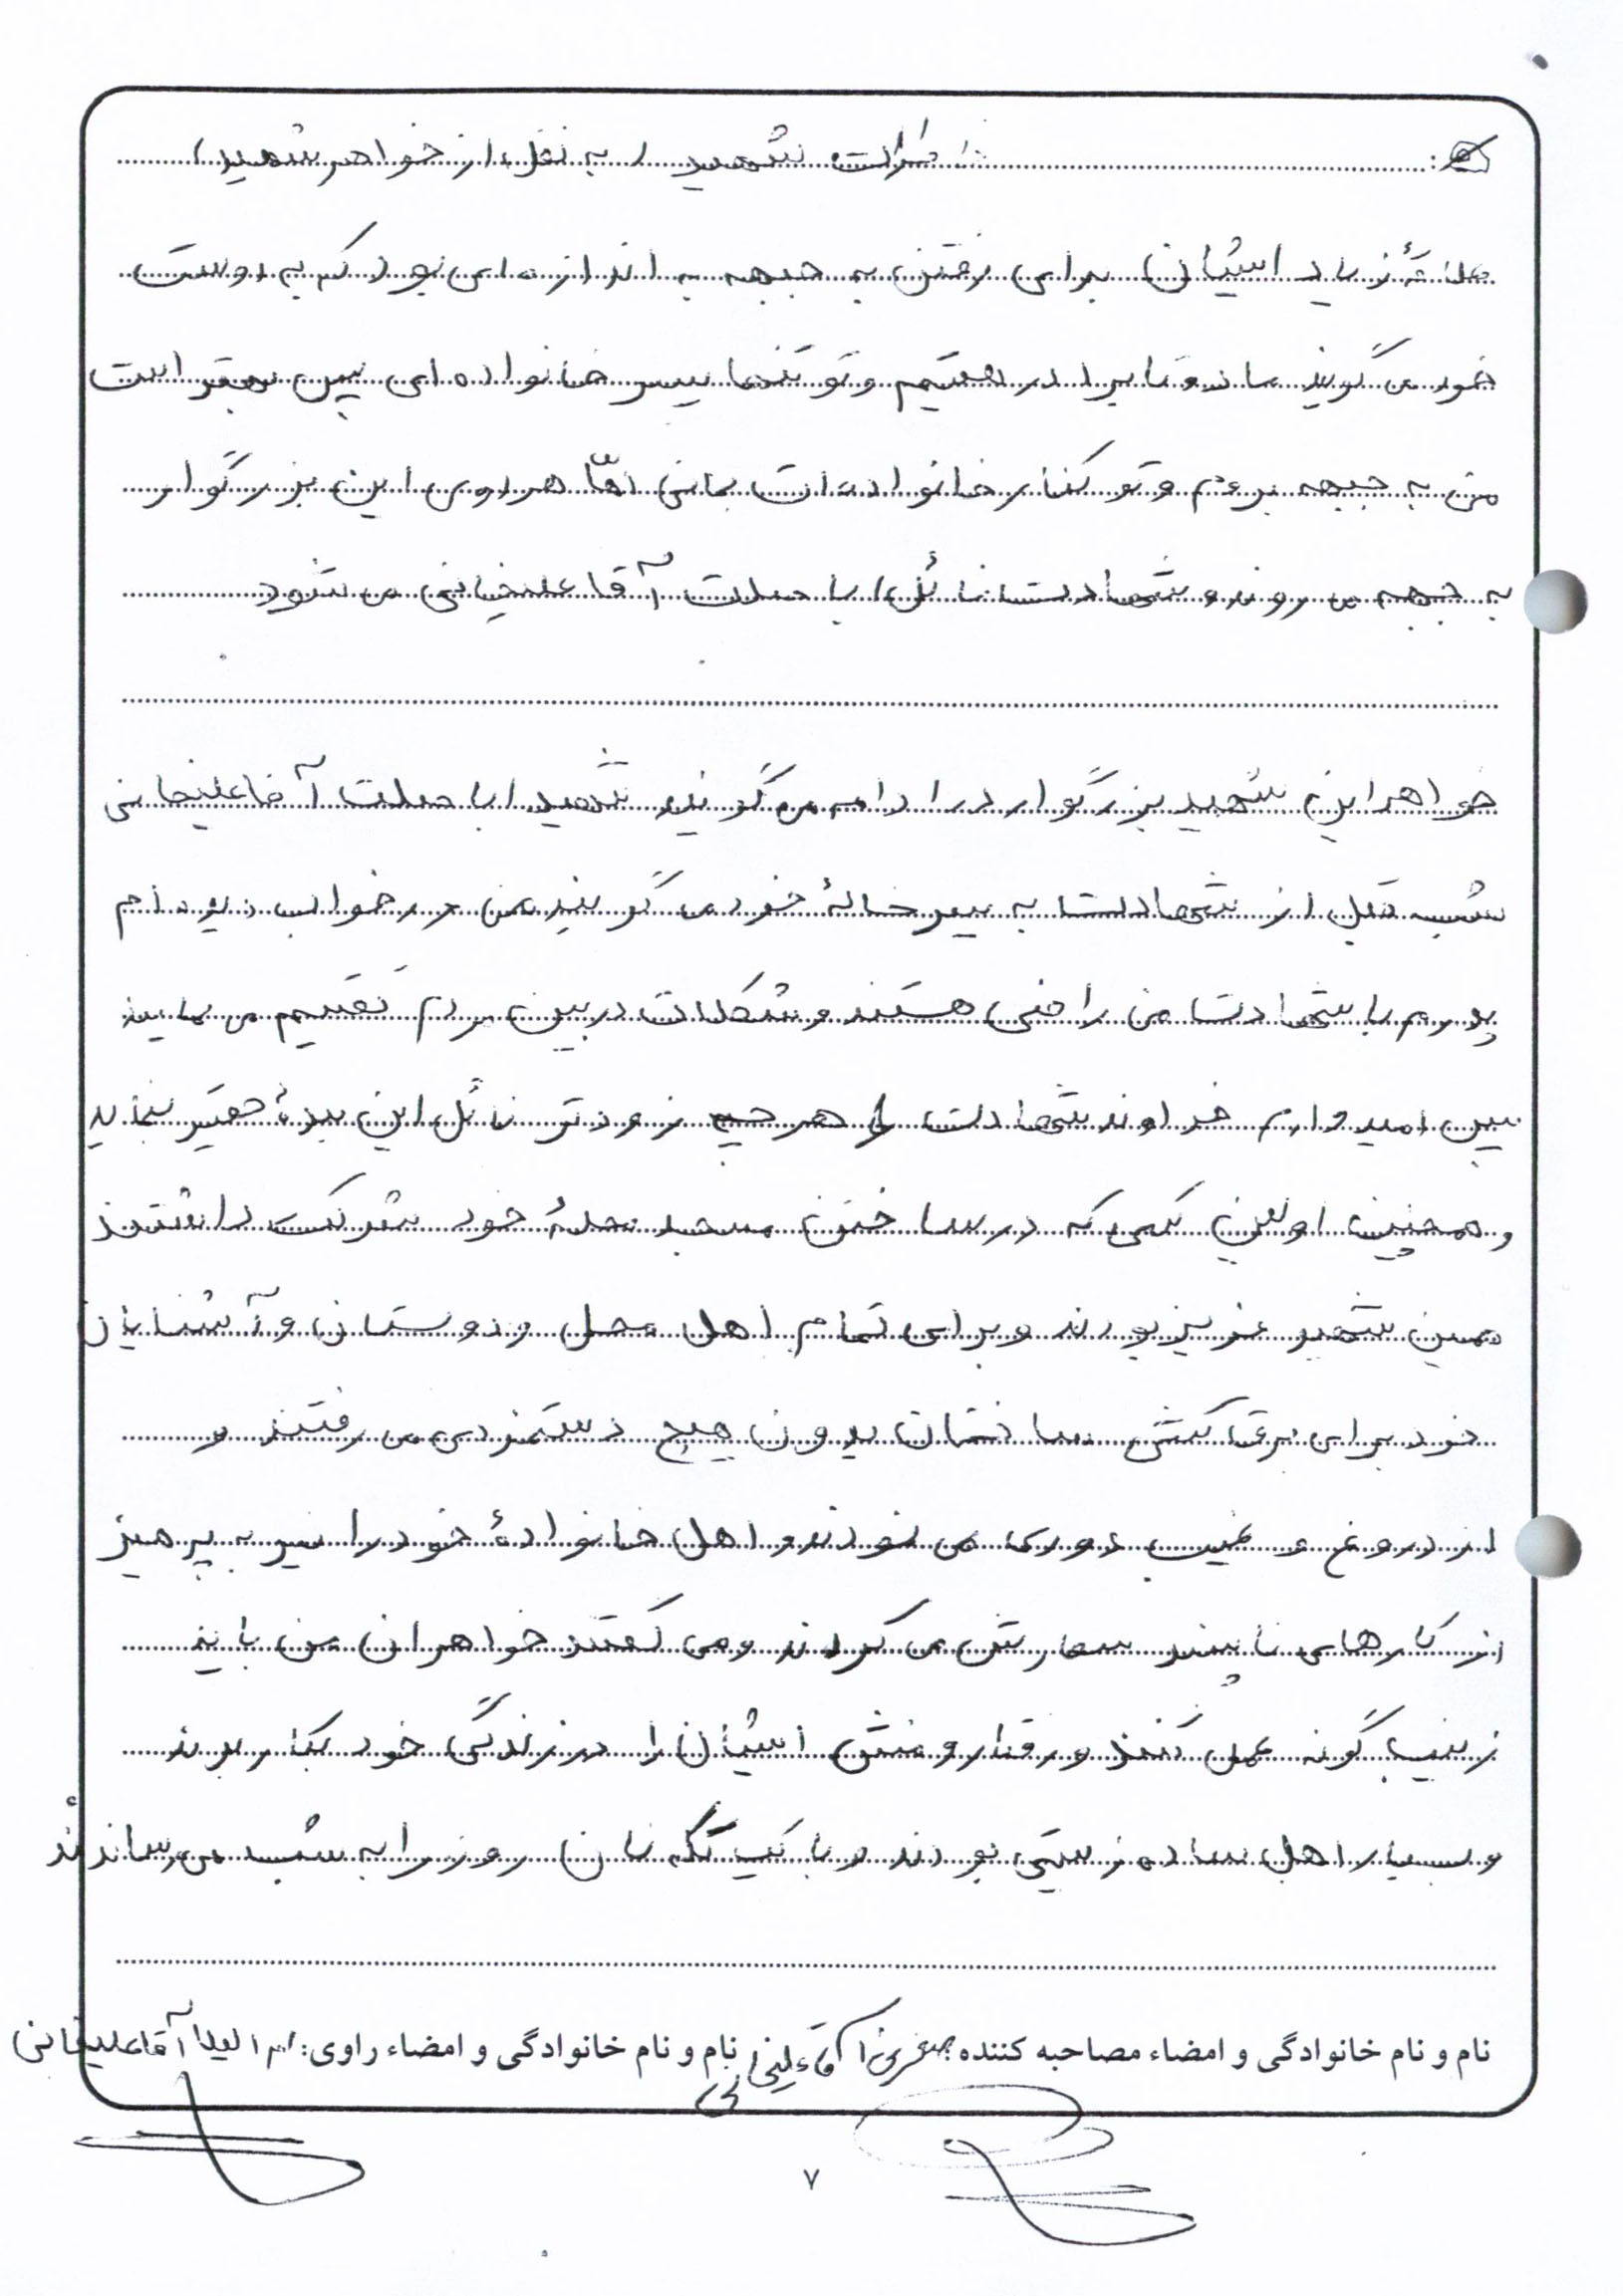 خاطرات شهید (به نقل از خواهر شهید)
علاقهٔ زیاد ایشان برای رفتن به جبهه به اندازه ای بود که به دوست
خود می گویند ما دو تا برادر هستیم و تو تنها پسر خانواده ای پس بهتر است
من به جبهه بروم و تو کنار خانواده ات بمانی امّا هر دوی این بزرگوار
به جبهه می روند و شهادت نائل با صلت آقا علیخانی می شود
خواهر این شهید بزرگوار در ادامه می گویند شهید ابا صلت آقا علیخانی
شب قبل از شهادت به پسر خالهٔ خود می گویند من در خواب دیده ام
پدرم با شهادت من راضی هستند و شکلات در بین مردم تقسیم می نمایند
پس امیدوارم خداوند شهادت را هر چه زودتر نائل این بندهٔ حقیر نماید
و همچنین اولین کسی که در ساختن مسجد محلهٔ خود شرکت داشتند
همین شهید عزیز بودند و برای تمام اهل محل و دوستان و آشنایان
خود برای برق کشی ساختمان بدون هیچ دستمزدی می رفتند و
از دروغ و غیبت دوری می نمودند و اهل خانوادهٔ خود را نیز به پرهیز
از کارهای ناپسند سفارش می کردند و می گفتند خواهران من باید
زینب گونه عمل کنند و رفتار و منش ایشان را در زندگی خود بکار برند
و بسیار اهل ساده زیستی بودند و با یک تکه نان روز را به شب می رساندند
نام و نام خانوادگی و امضاء مصاحبه کننده: آقاعلیخانی نام و نام خانوادگی و امضاء راوی: ام البنین آقاعلیخانی
۷